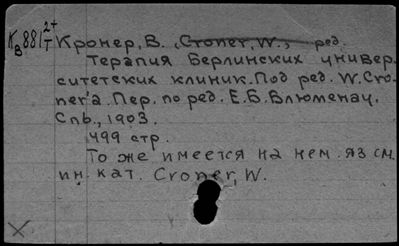 Кв 881 2+/I Кронер, В. , Croner, W., ред.
Терапия Берлинских универ-
ситетских клиник. Под ред. W. Cro-
ner'a. Пер. по ред. Е.Б. Блюменау.
Спб., 1903.
499 стр.
То же имеется на нем. яз см.
ин. кат. Croner, W.